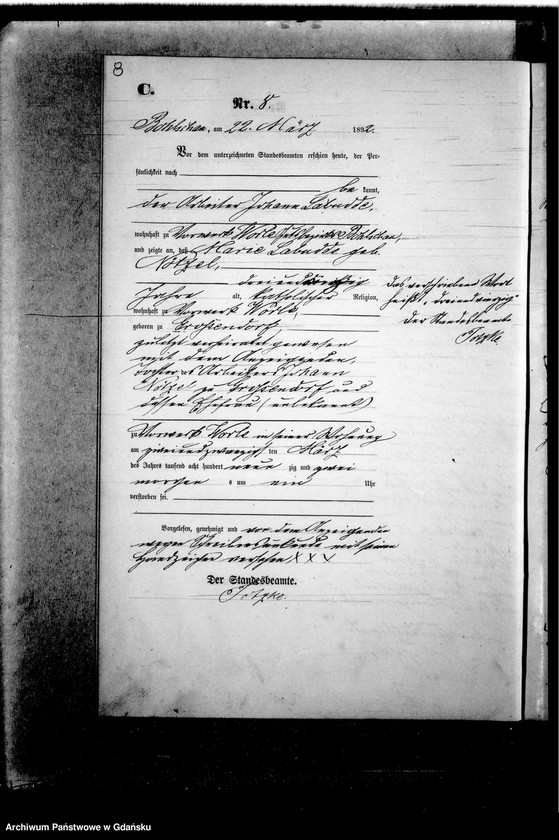 8
C.
Nr. 8.
Bohlschau, am 22. März 1892.
Vor dem unterzeichneten Standesbeamten erschien heute, der Per-
sönlichkeit nach
be kannt,
der Arbeiter Johann Labudde,
wohnhaft zu Vorwerk Worle Bohlschau,
und zeigte an, daß Marie Labudde geb.
Nötzel,
dreiund
Jahre alt, katholischer Religion,
wohnhaft zu Vorwerk Worle,
geboren zu Großendorf,
zuletzt verheiratet gewesen
mit dem Anzeigenden,
Tochter des Arbeiters Johann
Nötzel zu Großendorf und
dessen Ehefrau (unbekannt)
zu Vorwerk Worle in seiner Wohnung
am zweiundzwanzigsten März
des Jahres tausend acht hundert neun zig und zwei
morgens um ein Uhr
verstorben sei.
Das verschriebene Wort
heißt: dreiundvierzig
Der Standesbeamte
Totzke.
Vorgelesen, genehmigt und von dem Anzeigenden
wegen Schreibensunkunde mit seinem
Handzeichen versehen XXX
Der Standesbeamte.
Totzke.
Archiwum Państwowe w Gdańsku